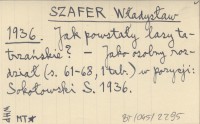 SZAFER Władysław
1936. Jak powstały lasy ta-
trzańskie? - Jako osobny roz-
dział (s. 61-68, 1 tab.) w pozycji:
Sokołowski S. 1936.
MT*